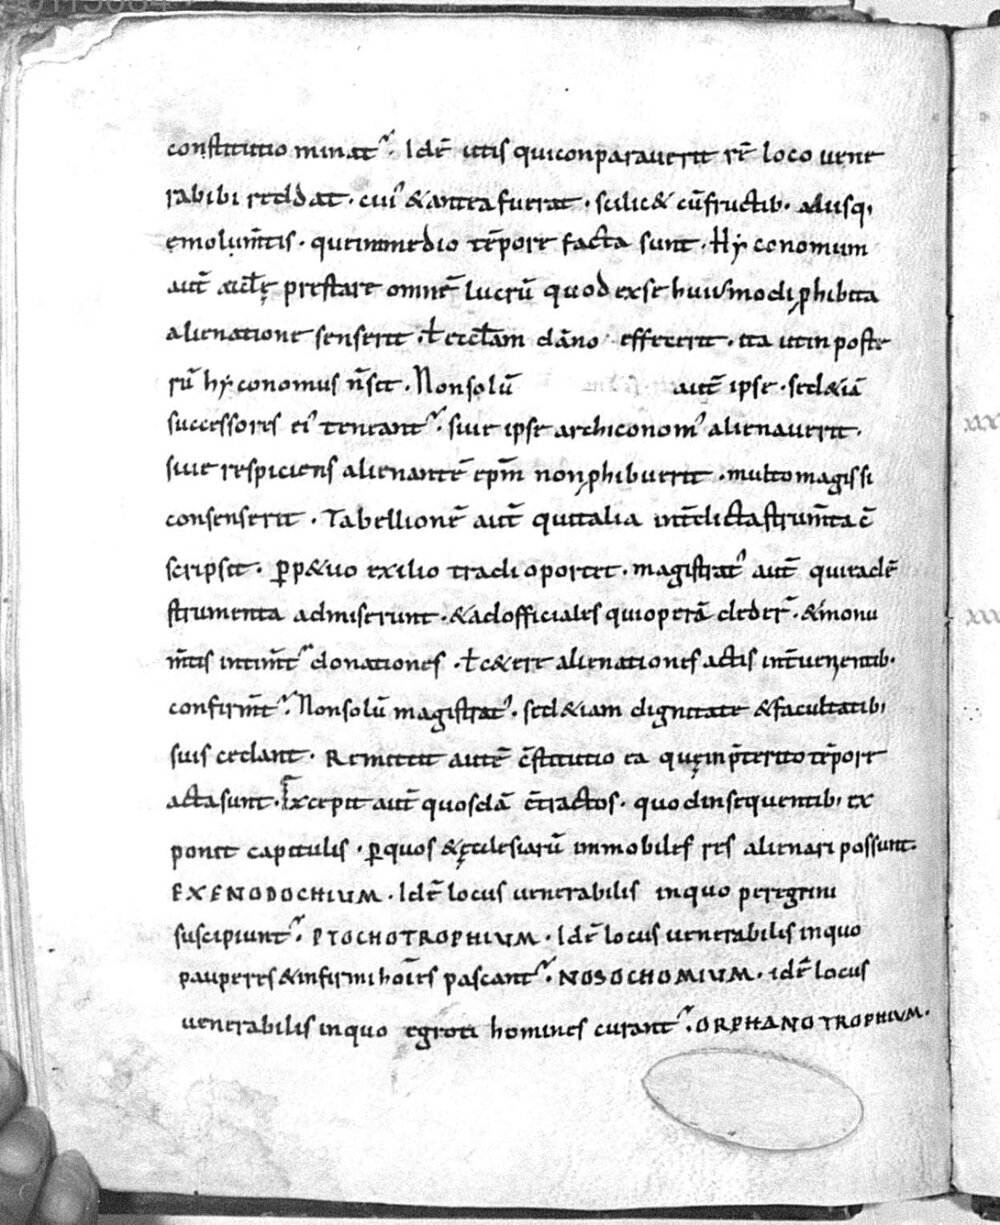 constitutio minat᷑. Idē utis quiconparauerit rē loco uene
rabibi reddat. cui᾿ & antea fuerat. scilic& cū fructib. aliisq;
emolum̄tis. que inmedio tēpore facta sunt. Hyconomum
aut̄ prestare omnē lucrū quod ex se huiusmodi phibita
alienatione senserit. ł ecclam dāno effecerit. ita utin poste
rū hyconomus n̄ sit. Non solū aut̄ ipse. sed &iā
successores ei᾿ teneant᷑. siue ipse archiconom᾿ alienauerit.
siue respiciens alienantē epm̄ non phibuerit. multo magis si
consenserit. Tabellionē aut̄ qui talia int̄dicta strum̄ta c̄
scripsit. ꝑp&uo exilio tradi oportet. magistrat᾿ aut̄ qui eadē
strumenta admiserunt. & ad officiales qui operā deder̄. & monu
m̄tis intim̄t᷑ donationes. ł c&ere alienationes actis int̄uenientib.
confirm̄t᷑. Non solū magistrat᾿. sed &iam dignitate & facultatib;
suis cedant. Remittit autē c̄stitutio ea quę in p̄terito tēpore
acta sunt. Excepit aut̄ quosdā c̄tractos. quod insequentib; ex
ponit capitulis. ꝑ quos & ęcclesiarū immobiles res alienari possunt.
EXENODOCHIUM. Idē locus uenerabilis in quo peregrini
suscipiunt᷑. PTOCHOTROPHIUM. Idē locus uenerabilis in quo
pauperes & infirmi hoīes pascant᷑. NOSOCHOMIUM. idē locus
uenerabilis in quo egroti homines curant᷑. ORPHANOTROPHIUM.